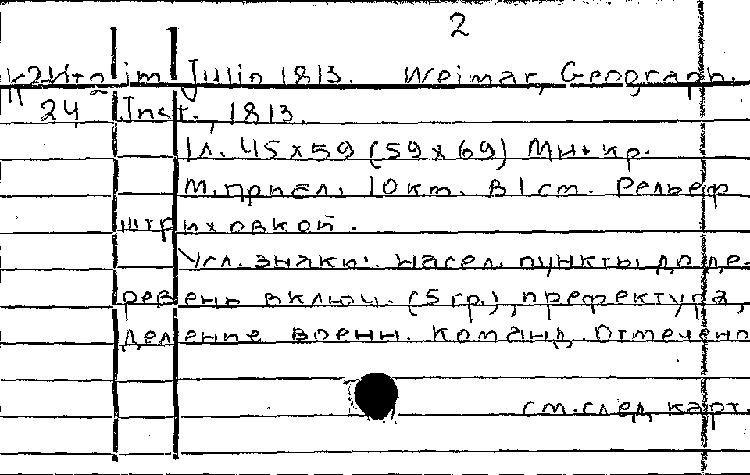 2
im Julio 1813. Weimar, Geograph.
24 Inst., 1813.
1л. 45x59 (59x69) Мн.кр.
М.прибл. 10км. в 1 см. Рельеф
штриховкой.
Усл. знаки: насел. пункты до де-
ревень включ. (5 гр.), префектура,
деление военн. команд. Отмечено
см. след. карт.